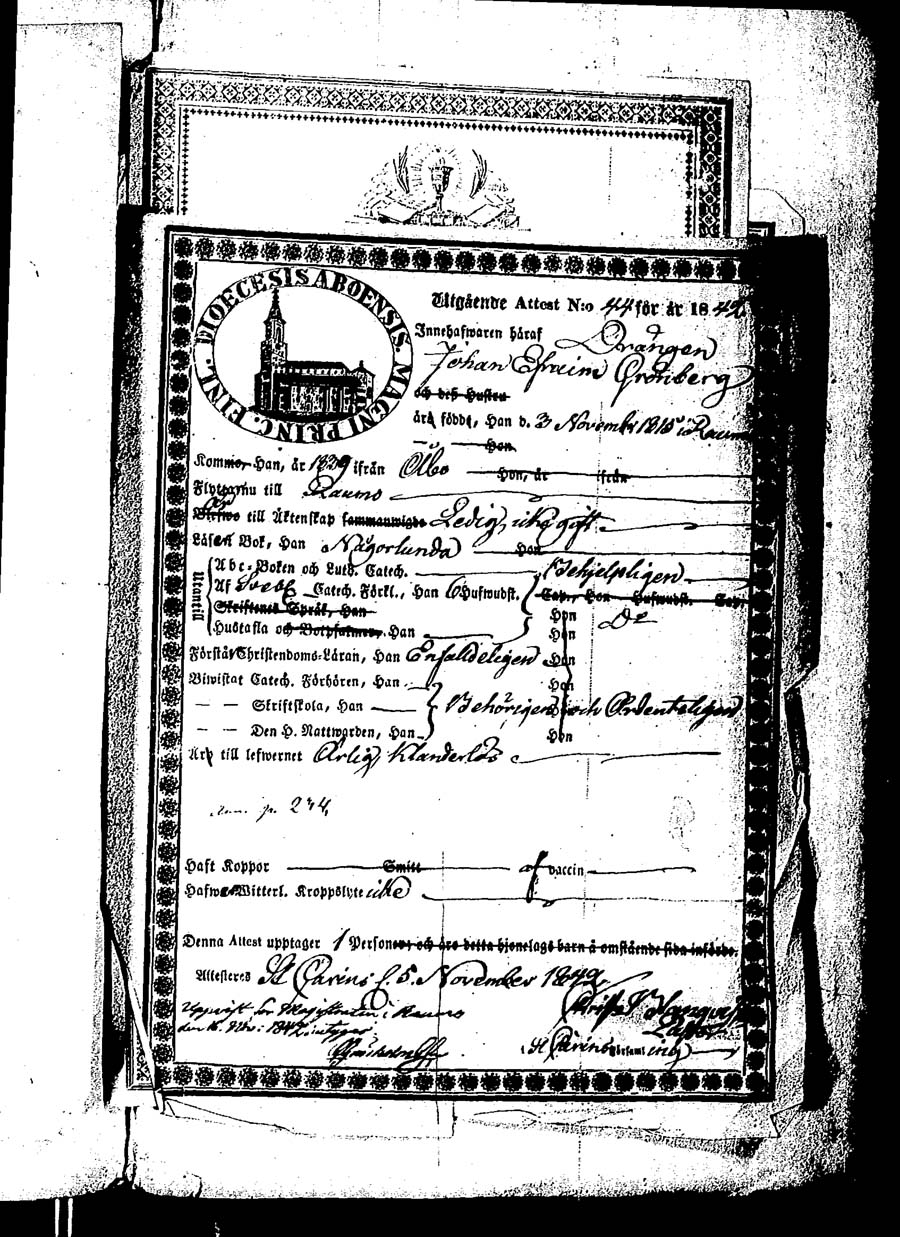 DIOECESIS ABOENSIS. MAGNI PRINC. FINL.
Utgående Attest N:o 44 för år 1842
Innehafwaren häraf Drängen
Johan Efraim Grönberg
och deß Hustru
är född, Han d. 3 November 1815 i Raumo
Hon
Kom Han, år 1839 ifrån Åbo Hon, år ifrån
Flyttar nu till Raumo
till Äktenskap sammanwigde Ledig, icke gift
Läser Bok, Han Någorlunda Hon
Utantill
Abc-Boken och Luth. Catech. Behjelpligen
Af Svebi Catech. Förkl., Han 6 Hufwudst. Cap., Hon Hufwudst. Cap.
Skriftenes Språk, Han Hon Do
Hustafla och Botpsalmer, Han Hon
Förstår Christendoms-Läran, Han Enfalldeligen Hon
Biwistat Catech. Förhören, Han Hon
— — Skriftskola, Han Behörigen och Ordenteligen
— — Den H. Nattwarden, Han Hon
Är till lefwernet Ärlig, Klanderlös
p. 234
Haft Koppor Smitt af vaccin
Hafwer Witterl. Kroppslyte icke
Denna Attest upptager 1 Personer och äro detta hjonelags barn å omstående sida införde.
Attesteras St Carins d. 5. November 1842
Uppvist för Magistraten i Raumo
den 16. Nov: 1842, intygar
St Carins församling